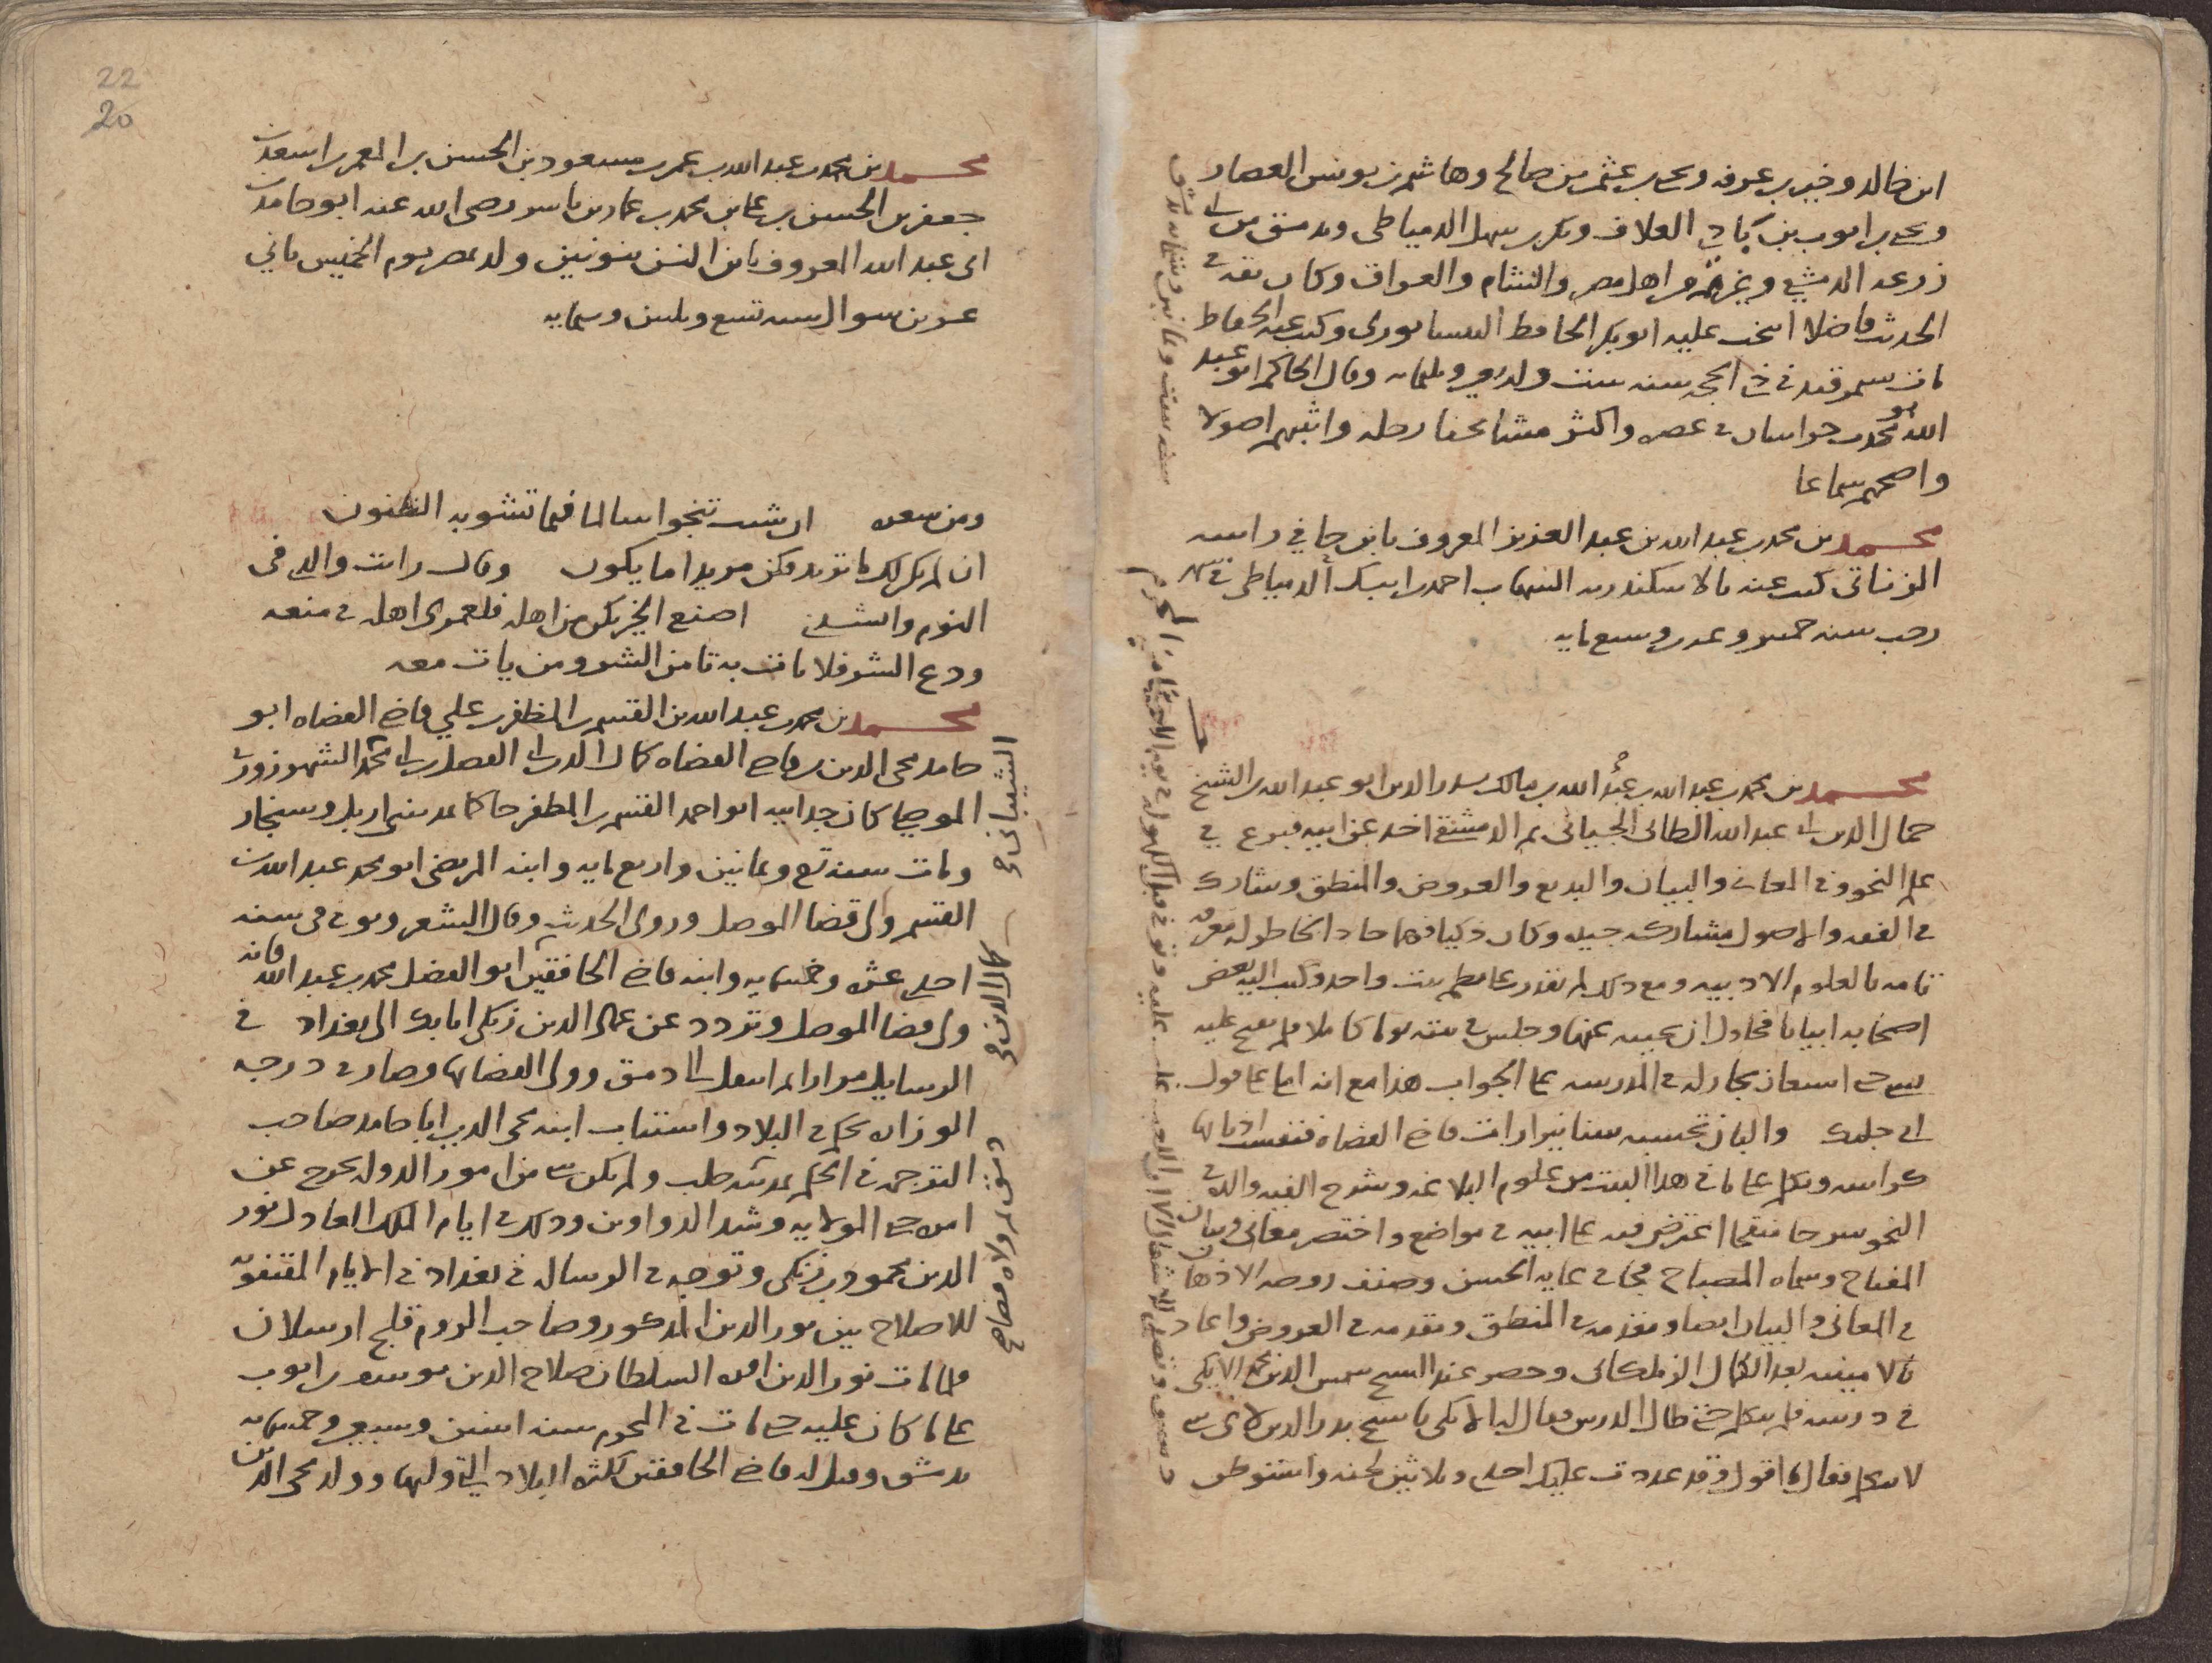 ابن خالد وخير بن عرفه ويحيى بن عثمن بن صالح وهاشم بن يونس العصار
ويحيى بن ايوب بن بادي العلاف وبكر بن سهل الدمياطى وبدمشق من ابى
زرعه الدمشقي وغيرهم من اهل مصر والشام والعراق وكان ثقه في
الحديث فاضلا انتخب عليه ابو بكر الحافظ النيسابورى وكتب عنه الحفاظ
مات بسمرقند في ذى الحجه سنه ست واربعين وثلثمايه وقال الحاكم ابو عبد
الله هو محدث خراسان في عصره واكثر مشايخنا رحله واثبتهم اصولا
واصحهم سماعا
محمد بن محمد بن عبد الله بن عبد العزيز المعروف بابن حافي راسه
الزناتى كتب عنه بالاسكندريه الشهاب احمد بن ايبك الدمياطى في شهر
رجب سنه خمس وعشرين وسبع مايه
محمد بن محمد بن عبد الله بن عبد الله بن مالك بدر الدين ابو عبد الله بن الشيخ
جمال الدين ابى عبد الله الطائى الجيانى ثم الدمشقي اخذ عن ابيه فبرع في
علم النحو وفي المعانى والبيان والبديع والعروض والمنطق وشارك
في الفقه والاصول مشاركه جيده وكان ذكيا فهما حاد الخاطر له معرفه
تامه بالعلوم الادبيه ومع ذلك لم يقدر على نظم بيت واحد وكتب اليه بعض
اصحابه ابياتا فحاول ان يجيبه عنها وجلس في بيته يوما كاملا فلم يفتح عليه
بشى حتى استعان بجار له في المدرسه على الجواب هذا مع انه املى على قول
ابى جلنك والبان تحسبه سنانيرا رات قاضي القضاه فنفست اذنابها
كراسه وتكلم على ما في هذا البيت من علوم البلاغه وشرح الفيه والده في
النحو شرحا منقحا اعترض فيه على ابيه في مواضع واختصر معانى وبيان
المفتاح وسماه المصباح فجا في غايه الحسن وصنف روضه الاذهان
في المعانى والبيان ايضا ومقدمه في المنطق ومقدمه في العروض واعاد
بالامينيه بعد الكمال الزملكانى وحضر عند الشيخ شمس الدين محمد الايكى
في درسه فلم يتكلم حتى طال الدرس فقال له الايكى يا شيخ بدر الدين لاى شى
لا تتكلم فقال ما اقول وقد عددت عليك احدى وثلاثين لحنه واستوطن
محمد بن محمد بن عبد الله بن عمر بن مسعود بن الحسن بن المعمر بن اسعد بن
جعفر بن الحسن بن على بن محمد بن عمار بن ياسر رضى الله عنه ابو حامد بن
ابى عبد الله المعروف بابن النن بنونين ولد بمصر يوم الخميس ثاني
عشرين شوال سنه تسع وثلثين وستمايه
ومن شعره ان شئت تنجو سالما فيما تشوبه الظنون
ان لم يكن لك ما تريد فكن مريدا ما يكون وقال رايت والدى في
النوم وانشدنى اصنع الخير يكن من اهله فلعمرى اهله في منعه
ودع الشر فلا تات به تامن الشر ومن يات معه
محمد بن محمد بن عبد الله بن القسم بن المظفر بن علي قاضي القضاه ابو
حامد محى الدين بن قاضي القضاه كمال الدين ابى الفضل بن ابى محمد الشهرزورى
الموصلى كان جد ابيه ابو احمد القسم بن المظفر حاكما بمدينتى اربل وسنجار
ومات سنه تسع وثمانين واربع مايه وابنه المرتضى ابو محمد عبد الله بن
القسم ولى قضا الموصل وروى الحديث وقال الشعر وتوفى في سنه
احدى عشره وخمسمايه وابنه قاضي الخافقين ابو الفضل محمد بن عبد الله فانه
ولى قضا الموصل وتردد عن عماد الدين زنكى اتابك الى بغداد في
الرسايل مرارا ثم انتقل الى دمشق وولى القضا بها وصار في درجه
الوزاره يحكم في البلاد واستناب ابنه محى الدين ابا حامد صاحب
الترجمه في الحكم بمدينه حلب ولم يكن شى من امور الدوله يخرج عن
امره حتى الولايه وشد الدواوين وذلك في ايام الملك العادل نور
الدين محمود بن زنكى وتوجه في الرساله في بغداد في الايام المقتفويه
للاصلاح بين نور الدين المذكور وصاحب الروم قلج ارسلان
ولما مات نور الدين اقره السلطان صلاح الدين يوسف بن ايوب
على ما كان عليه حتى مات في المحرم سنه اثنين وسبعين وخمسمايه
بدمشق وقيل له قاضي الخافقين لكثره البلاد التي وليها وولد محى الدين
22
20